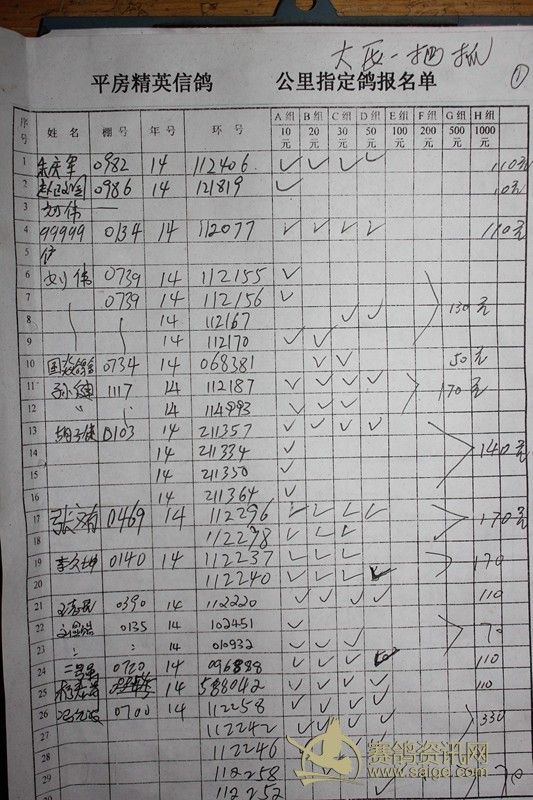 ①
平房精英信鸽 公里指定鸽报名单
序号 姓名 棚号 年号 环号 A组10元 B组20元 C组30元 D组50元 E组100元 F组200元 G组500元 H组1000元
1 0982 14 112406 ✓ ✓ ✓ ✓ 110元
2 0986 14 121819 ✓ 10元
3 刘伟
4 99999 0134 14 112077 ✓ ✓ ✓ ✓ 110元
5
6 刘伟 0739 14 112155 ✓
7 0739 14 112156 ✓ 130元
8 14 112167 ✓ ✓
9 14 112170 ✓ ✓
10 0734 14 068381 ✓ ✓ 50元
11 孙健 1117 14 112187 ✓ ✓ ✓ ✓ 170元
12 14 114993 ✓ ✓ ✓
13 0103 14 211357 ✓ ✓ ✓ ✓
14 14 211334 ✓ 140元
15 14 211350 ✓
16 14 211364 ✓
17 0469 14 112296 ✓ ✓ ✓ ✓ 170元
18 112298 ✓ ✓ ✓
19 0140 14 112237 ✓ ✓ ✓ 170
20 112240 ✓ ✓ ✓ ✓
21 0390 14 112220 ✓ ✓ ✓ ✓ 110
22 0135 14 102451 ✓ 70
23 14 010932 ✓ ✓ ✓
24 0720 14 096888 ✓ ✓ ✓ 110
25 14 588042 ✓ ✓ ✓ ✓ 110
26 0700 14 112258 ✓ ✓ ✓ 330
27 112242 ✓ ✓ ✓ ✓
28 112246
29 112258
112252
赛鸽资讯网
www.saige.com